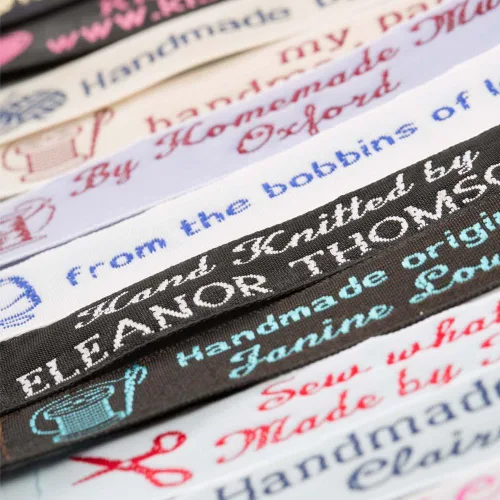 www.k
Handmade b
my
handma
By Homemade
Oxford
from the bobbins of
Hand Knitted by
ELEANOR THOMSO
Handmade origi
Janine Lou
Sew what
Made by
Handmade
Clair